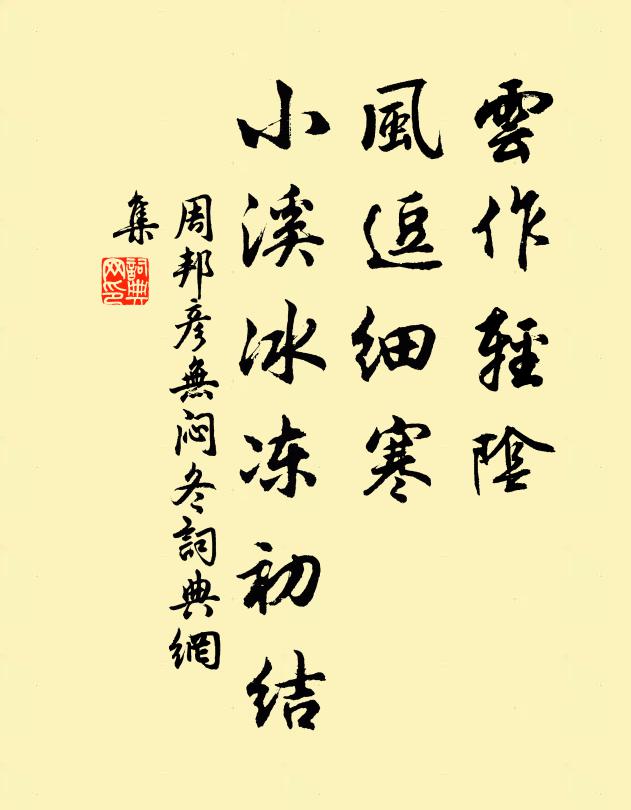 雲作輕陰
風逗細寒
小溪冰冻初結
周邦彦無闷冬詞典網
集
詞典
网印